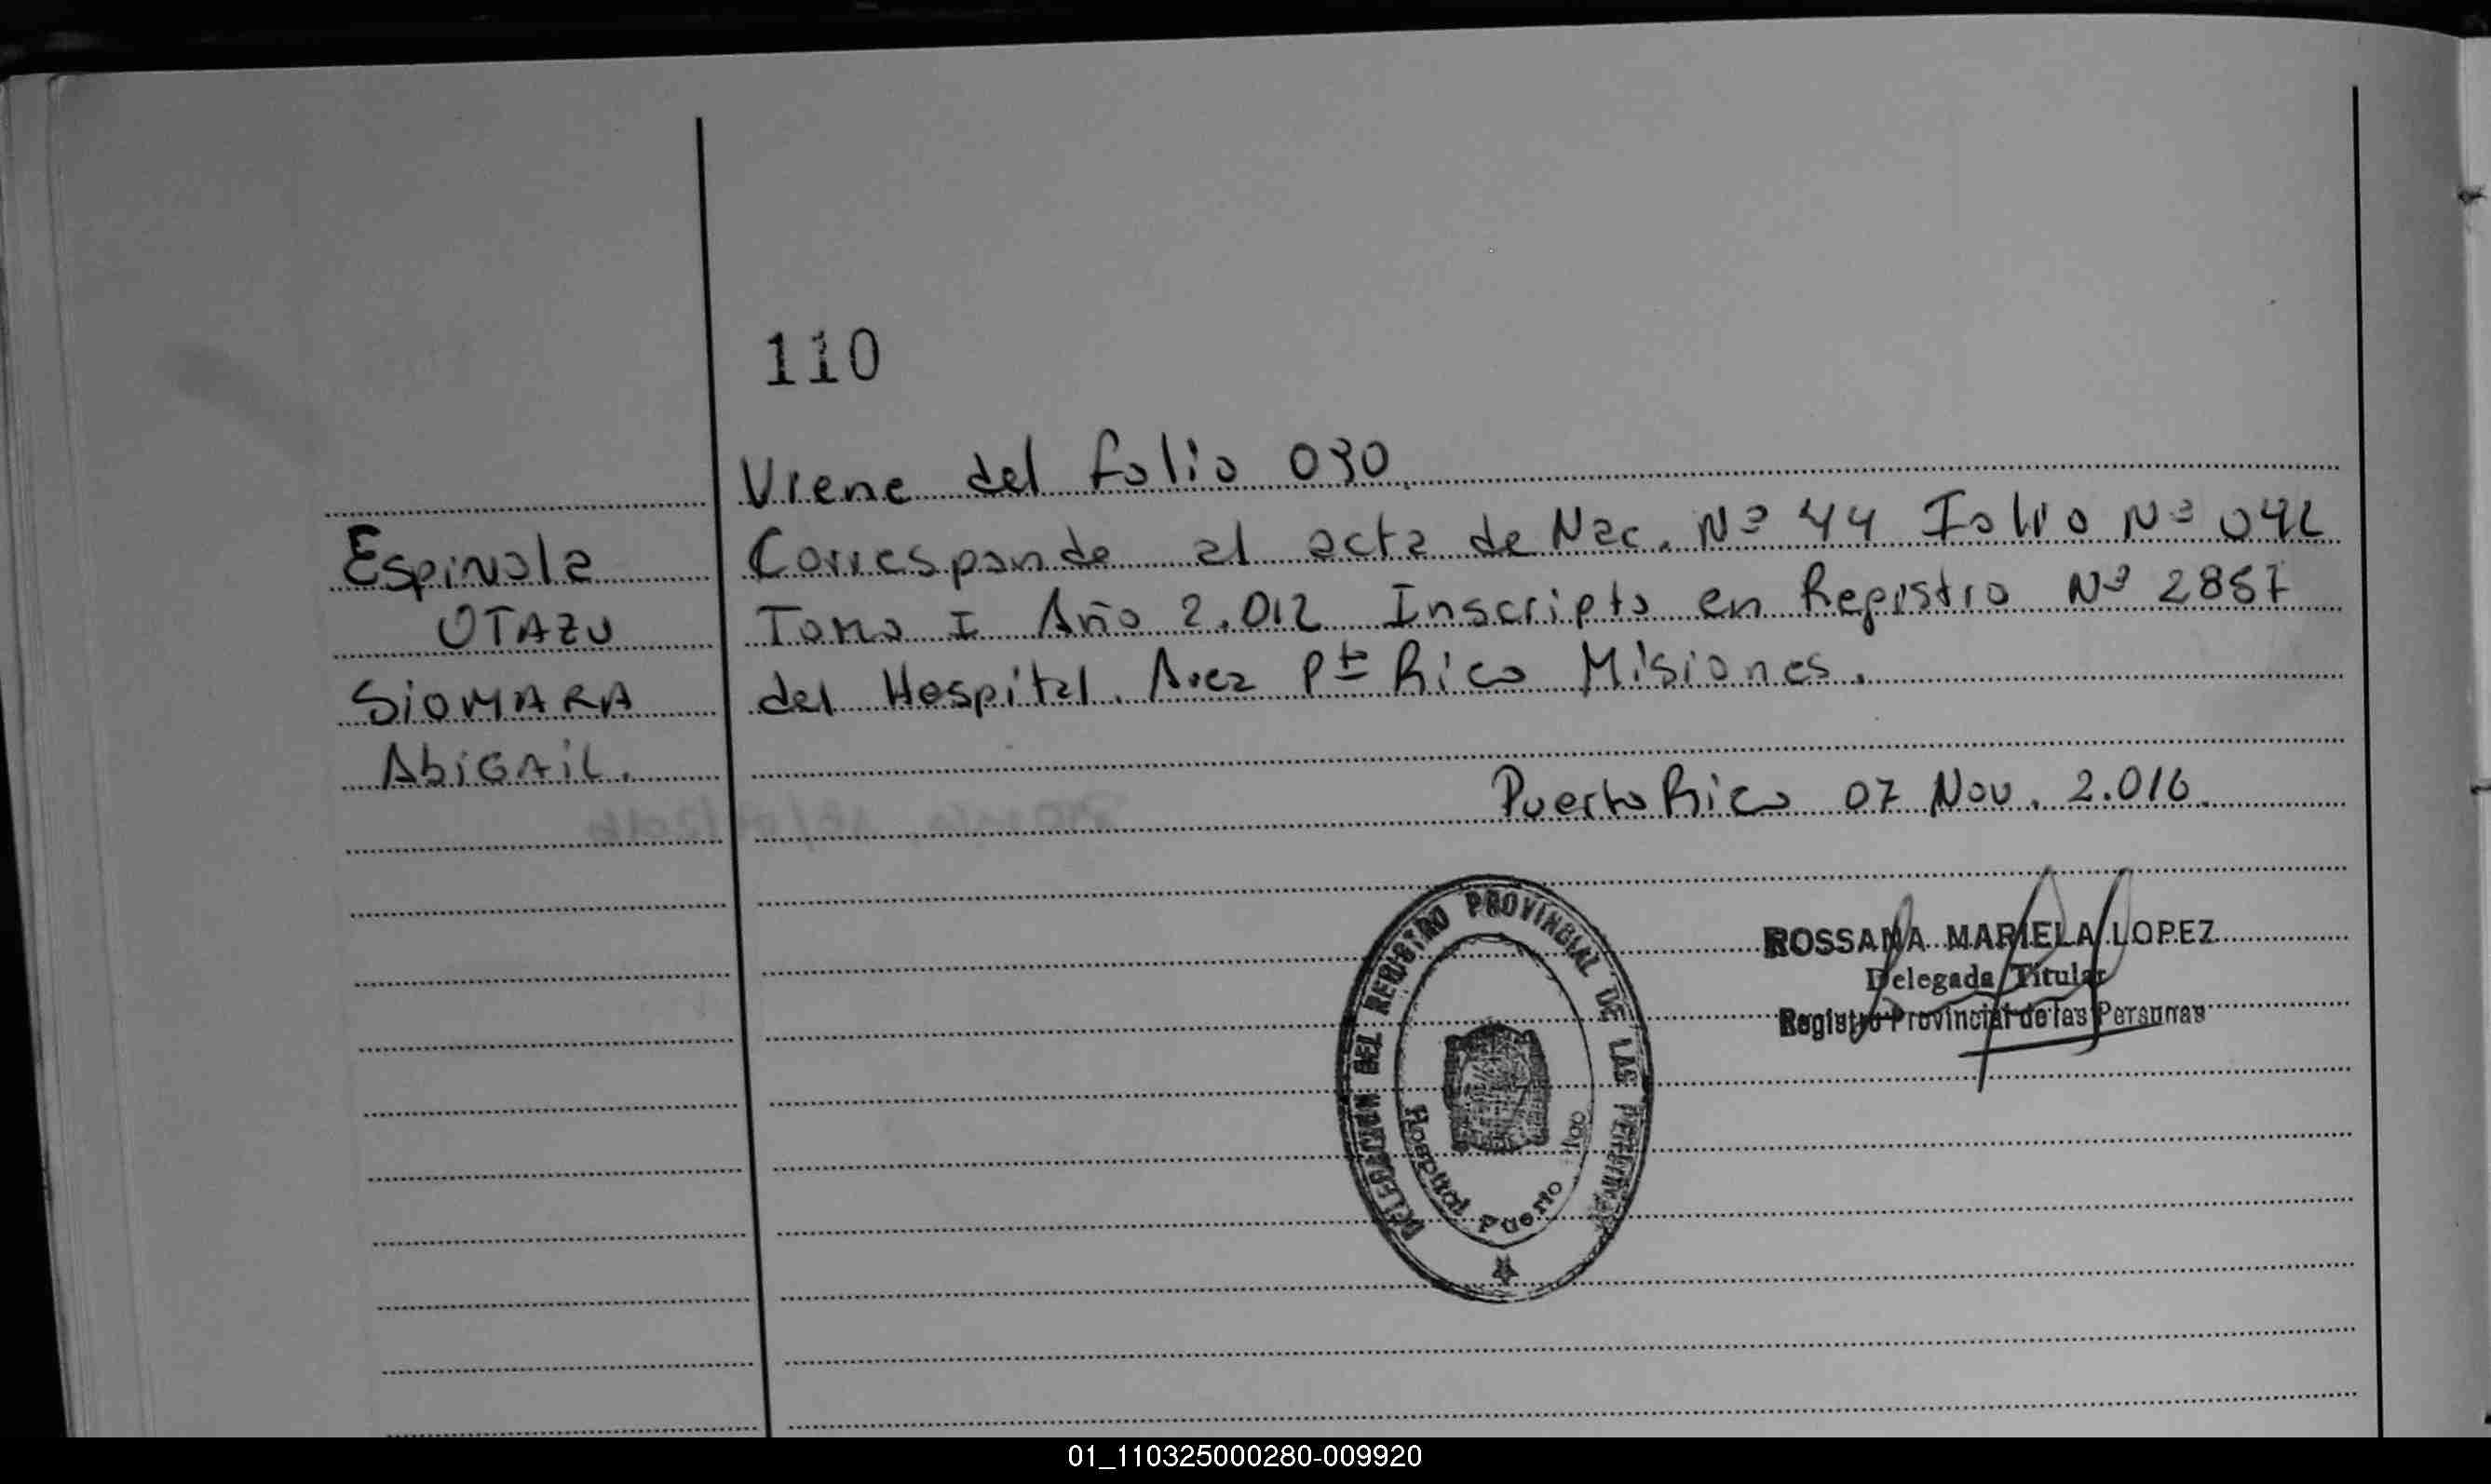 110
Viene del folio 030
Corresponde al acta de Nac. Nº 44 Folio Nº 042
Tomo I Año 2.012 Inscripto en Registro Nº 2857
del Hospital. Area Pto Rico Misiones.
Espinola
OTAZU
SiOMARA
AbiGAiL.
Puerto Rico 07 Nov. 2.016.
DELEGACION DEL REGISTRO PROVINCIAL DE LAS PERSONAS
Hospital Puerto Rico
ROSSANA MARIELA LOPEZ
Delegada Titular
Registro Provincial de las Personas
01_110325000280-009920